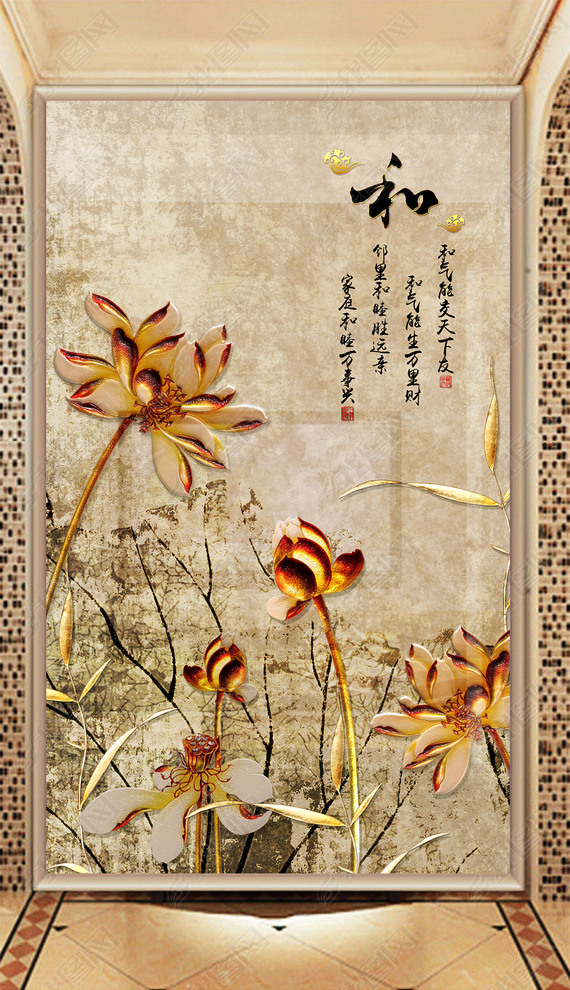 和
和气能交天下友
和气能生万里财
邻里和睦胜远亲
家庭和睦万事兴